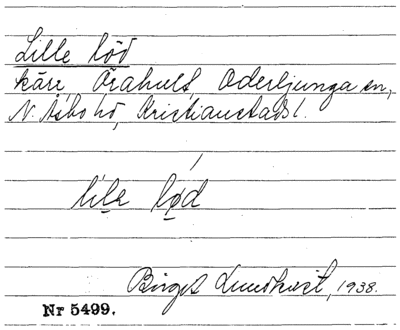 Lille löd
kärr, Örahult, Oderljunga sn,
N. Åsbo hd, Kristianstads l.
lila lød
Birget Lundkvist, 1938.
Nr 5499.